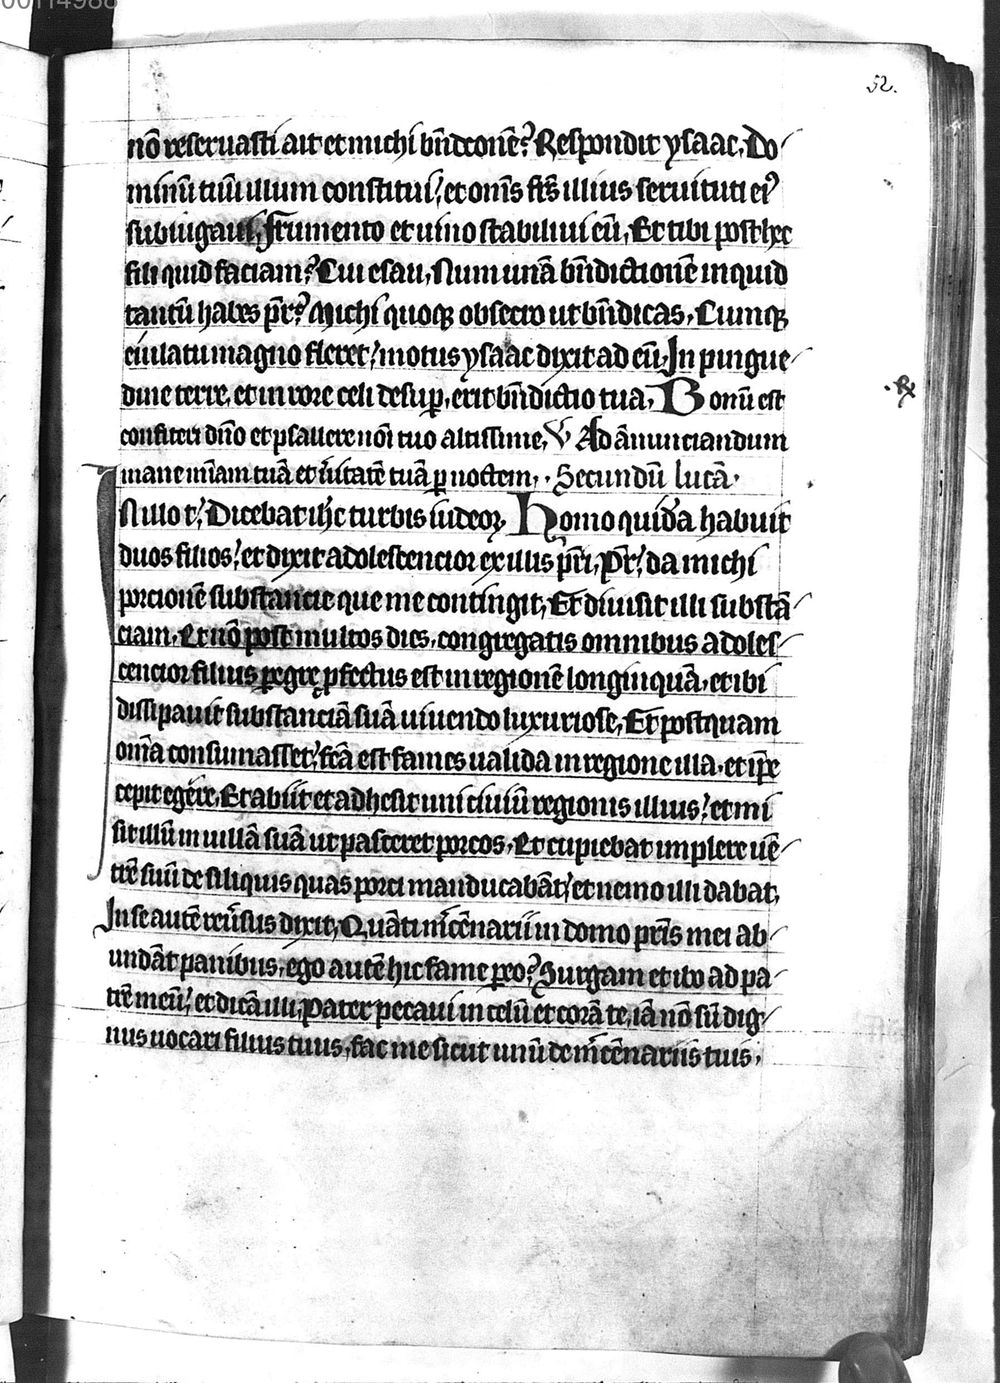 52.
nō reseruasti ait et michi bn̄dcōnē? Respondit ysaac, Do
minū tuū illum constitui, et om̄s frs̄ illius seruituti ei9
subiugaui, Frumento et uino stabiliui eū, Et tibi post hec
fili quid faciam? Cui esau, Num unā bn̄dictionē inquid
tantū habes pr̄? Michi quoq obsecro ut bn̄dicas, Cumq
eiulatu magno fleret, motus ysaac dixit ad eū, In pingue
dine terre, et in rore celi desup, erit bn̄dictio tua, Bonū est
confiteri dn̄o et psallere nōi tuo altissime, V Ad ānunciandum
mane mīam tuā et uītatē tuā p noctem, Secundū lucā
In illo t, Dicebat ih̄c turbis iudeoꝝ, Homo quidā habuit
duos filios, et dixit adolescencior ex illis pr̄i, Pr̄, da michi
porcionē substancie que me contingit, Et diuisit illi substā
ciam, Et nō post multos dies, congregatis omnibus adoles
cencior filius pegre pfectus est in regionē longinquā, et ibi
dissipauit substanciā suā uiuendo luxuriose, Et postquam
om̄ia consumasset, fcā est fames ualida in regione illa, et ip̄e
cepit egēre, Et abiit et adhesit uni ciuiū regionis illius, et mi
sit illū in uillā suā ut pasceret porcos, Et cupiebat implere uē
trē suū de siliquis quas porci manducabāt, et nemo illi dabat,
In se autē reu̇sus dixit, Quāti m̄cēnarii in domo pr̄is mei ab
undāt panibus, ego autē hic fame peo? Surgam et ibo ad pa
trē meū, et dicā illi, Pater peccaui in celū et corā te, iā nō sū dig
nus uocari filius tuus, fac me sicut unū de m̄cēnariis tuis,